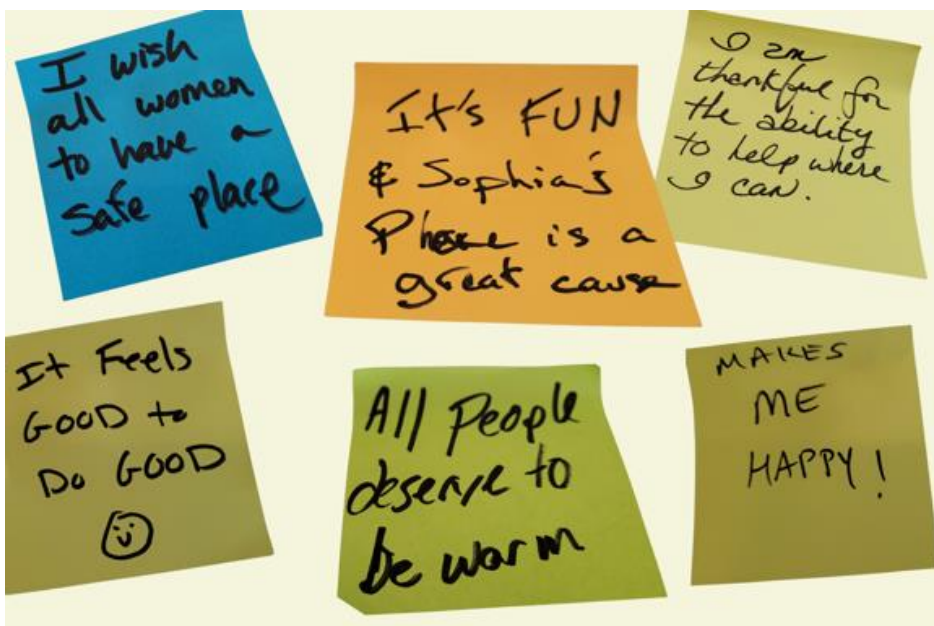 I wish
all women
to have a
safe place
It's FUN
& Sophia's
Place is a
great cause
I am
thankful for
the ability
to help where
I can.
It Feels
GOOD to
Do GOOD
All People
deserve to
be warm
MAKES
ME
HAPPY!